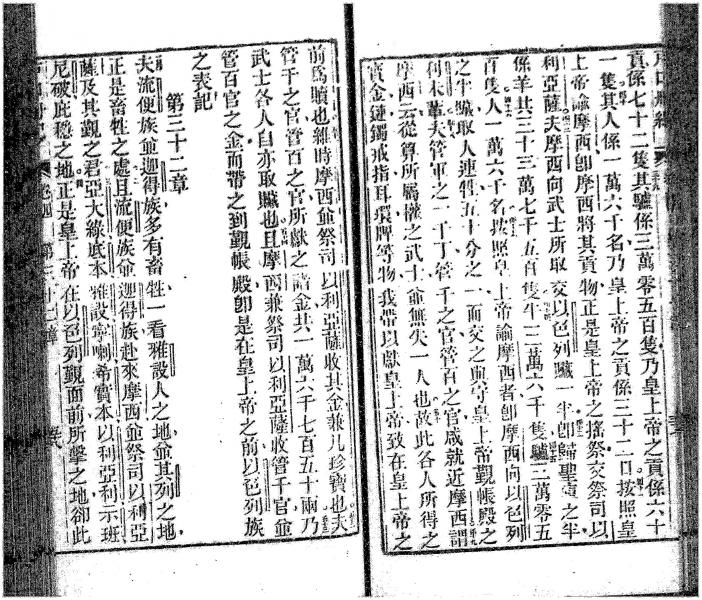 貢係七十二隻其驢係三萬零五百隻乃皇上帝之貢係六十
一隻其人係一萬六千名乃皇上帝之貢係三十二口按照皇
上帝諭摩西卽摩西將其貢物正是皇上帝之搖祭交祭司以
利亞薩夫摩西向武士所取交以色列贓一半卽歸聖會之半
係羊共三十三萬七千五百隻牛三萬六千隻驢三萬零五
百隻人一萬六千名按照皇上帝諭摩西者卽摩西向以色列
之牛贓取人連牲五十分之一而交之與守皇上帝覲帳殿之
利未輩夫管軍之一千丁管千之官管百之官咸就近摩西謂
摩西云從算所屬權之武士並無失一人也故此各人所得之
寶金鏈鐲戒指耳環牌等物我帶以獻皇上帝致在皇上帝之
前爲贖也維時摩西並祭司以利亞薩收其金兼凡珍寶也夫
管千之官管百之官所獻之諸金共一萬六千七百五十兩乃
武士各人自亦取贓也且摩西兼祭司以利亞薩收管千官並
管百官之金而帶之到覲帳殿卽是在皇上帝之前以色列族
之表記
第三十二章
夫流便族並迦得族多有畜牲一看雅設人之地並其列之地
正是畜牲之處且流便族並迦得族赴來摩西並祭司以利亞
薩及其覲之君亞大綠底本雅設寧喇希實本以利亞利示班
尼破庇穩之地正是皇上帝在以色列覲面前所擊之地卻此